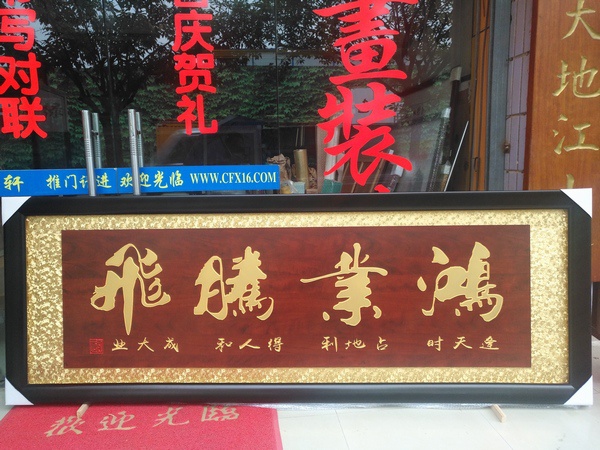 写对联
庆贺礼
畫裝
大地江
轩 推门请进 欢迎光临 WWW.CFX16.COM
鴻業騰飛
逢天时 占地利 得人和 成大业
歡迎光臨